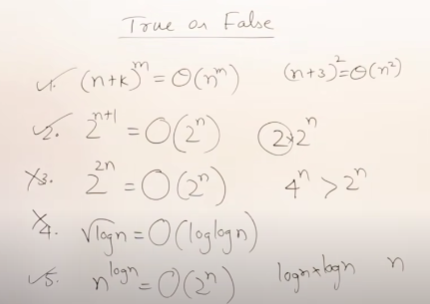 True or False
✓1. (n+k)^m = O(n^m) (n+3)^2 = O(n^2)
✓2. 2^{n+1} = O(2^n) 2×2^n
×3. 2^{2n} = O(2^n) 4^n > 2^n
×4. √logn = O(loglogn)
✓5. n^{logn} = O(2^n) logn×logn n